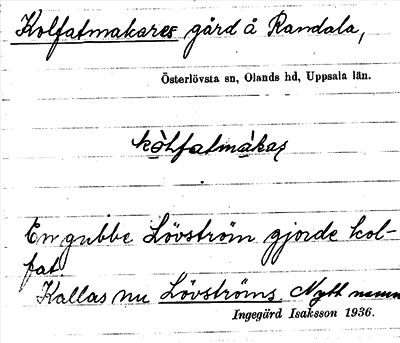 Kolfatmakares gård å Randala,
Österlövsta sn, Olands hd, Uppsala län.
kòlfatmàkas
En gubbe Lövström gjorde kol-
fat
Kallas nu Lövströms. Nytt namn
Ingegärd Isaksson 1936.